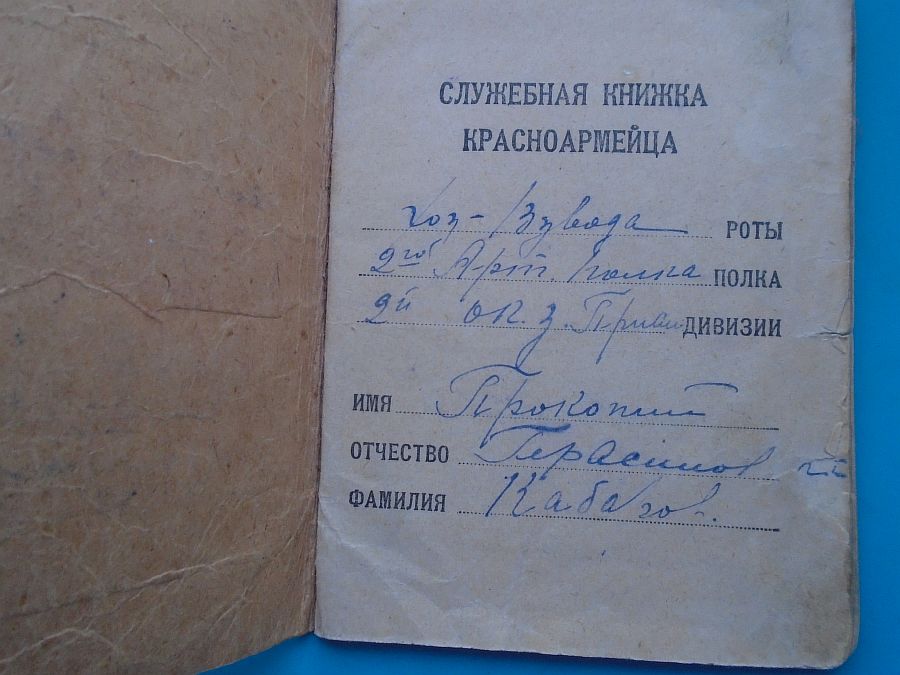 СЛУЖЕБНАЯ КНИЖКА
КРАСНОАРМЕЙЦА
Хоз-Взвода РОТЫ
2го Арт. полка ПОЛКА
2й ДИВИЗИИ
ИМЯ Прокопий
ОТЧЕСТВО Герасимов
ФАМИЛИЯ